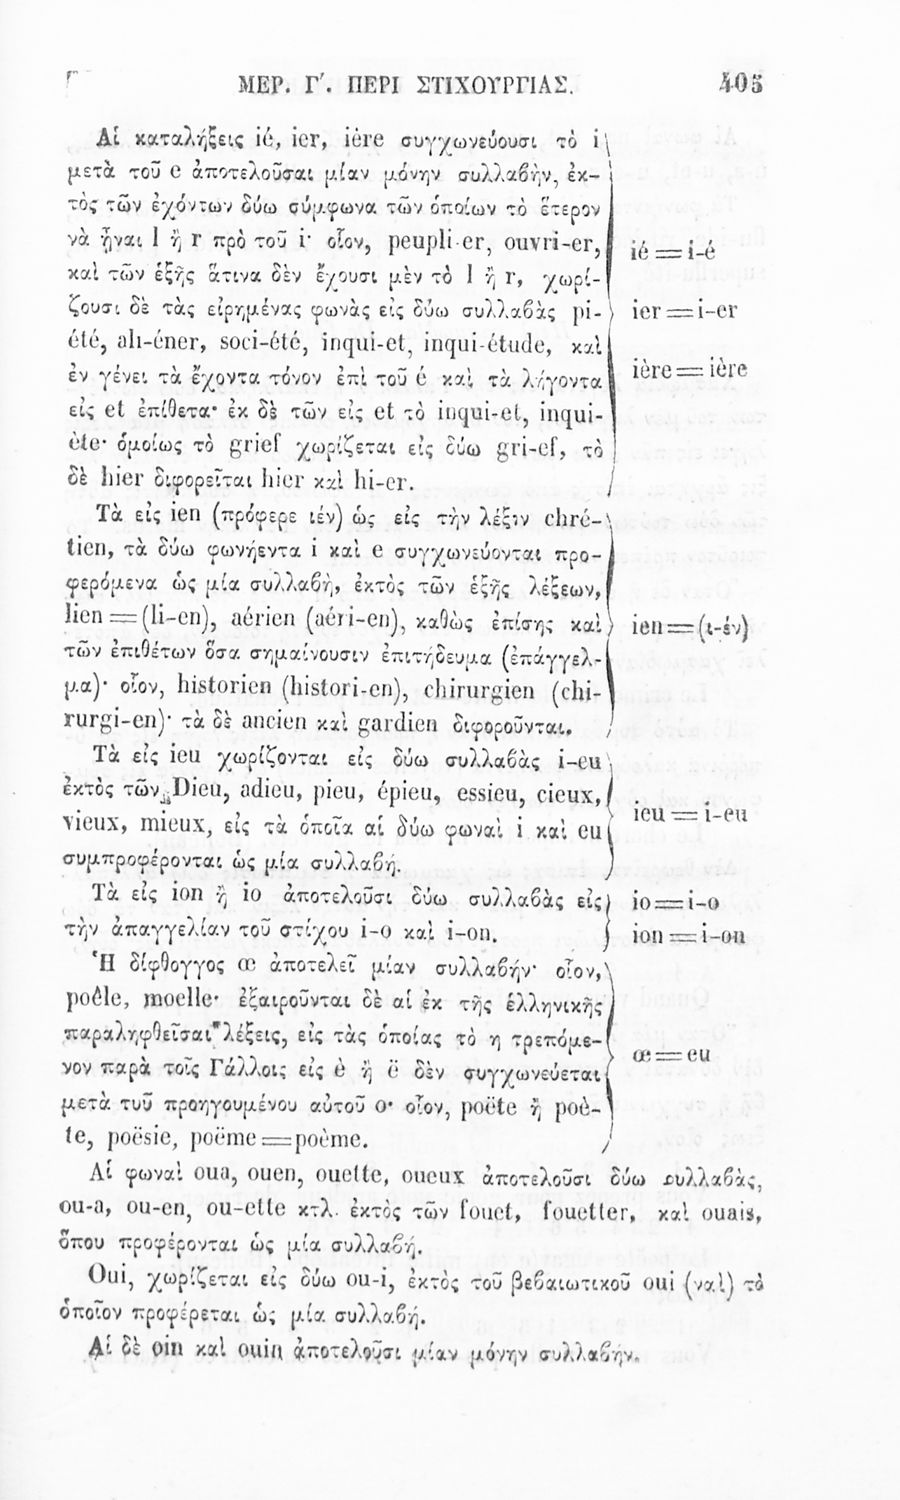 ΜΕΡ. Γ΄. ΠΕΡΙ ΣΤΙΧΟΥΡΓΙΑΣ. 405
Αἱ καταλήξεις ié, ier, ière συγχωνεύουσι τὸ i
μετὰ τοῦ e ἀποτελοῦσαι μίαν μόνην συλλαβὴν, ἐκ-
τὸς τῶν ἐχόντων δύω σύμφωνα τῶν ὁποίων τὸ ἕτερον
νὰ ἦναι l ἢ r πρὸ τοῦ i· οἷον, peupli-er, ouvri-er,
ié = i-é
καὶ τῶν ἑξῆς ἅτινα δὲν ἔχουσι μὲν τὸ l ἢ r, χωρί-
ζουσι δὲ τὰς εἰρημένας φωνὰς εἰς δύω συλλαβὰς pi-
ier = i-er
été, ali-éner, soci-été, inqui-et, inqui-étude, καὶ
ἐν γένει τὰ ἔχοντα τόνον ἐπὶ τοῦ é καὶ τὰ λήγοντα
ière = ière
εἰς et ἐπίθετα· ἐκ δὲ τῶν εἰς et τὸ inqui-et, inqui-
ète· ὁμοίως τὸ grief χωρίζεται εἰς δύω gri-ef, τὸ
δὲ hier διφορεῖται hier καὶ hi-er.
Τὰ εἰς ien (πρόφερε ιέν) ὡς εἰς τὴν λέξιν chré-
tien, τὰ δύω φωνήεντα i καὶ e συγχωνεύονται προ-
φερόμενα ὡς μία συλλαβὴ, ἐκτὸς τῶν ἑξῆς λέξεων,
lien = (li-en), aérien (aéri-en), καθὼς ἐπίσης καὶ
ien = (ι-έν)
τῶν ἐπιθέτων ὅσα σημαίνουσιν ἐπιτήδευμα (ἐπάγγελ-
μα)· οἷον, historien (histori-en), chirurgien (chi-
rurgi-en)· τὰ δὲ ancien καὶ gardien διφοροῦνται.
Τὰ εἰς ieu χωρίζονται εἰς δύω συλλαβὰς i-eu
ἐκτὸς τῶν Dieu, adieu, pieu, épieu, essieu, cieux,
ieu = i-eu
vieux, mieux, εἰς τὰ ὁποῖα αἱ δύω φωναὶ i καὶ eu
συμπροφέρονται ὡς μία συλλαβή.
Τὰ εἰς ion ἢ io ἀποτελοῦσι δύω συλλαβὰς εἰς
io = i-o
τὴν ἀπαγγελίαν τοῦ στίχου i-o καὶ i-on.
ion = i-on
Ἡ δίφθογγος œ ἀποτελεῖ μίαν συλλαβήν· οἷον,
poêle, moelle· ἐξαιροῦνται δὲ αἱ ἐκ τῆς ἑλληνικῆς
παραληφθεῖσαι λέξεις, εἰς τὰς ὁποίας τὸ η τρεπόμε-
œ = eu
νον παρὰ τοῖς Γάλλοις εἰς è ἢ ë δὲν συγχωνεύεται
μετὰ τοῦ προηγουμένου αὐτοῦ o· οἷον, poëte ἢ poè-
te, poësie, poëme = poème.
Αἱ φωναὶ oua, ouen, ouette, oueux ἀποτελοῦσι δύω συλλαβὰς,
ou-a, ou-en, ou-ette κτλ. ἐκτὸς τῶν fouet, fouetter, καὶ ouais,
ὅπου προφέρονται ὡς μία συλλαβή.
Oui, χωρίζεται εἰς δύω ou-i, ἐκτὸς τοῦ βεβαιωτικοῦ oui (ναὶ) τὸ
ὁποῖον προφέρεται ὡς μία συλλαβή.
Αἱ δὲ oin καὶ ouin ἀποτελοῦσι μίαν μόνην συλλαβήν.